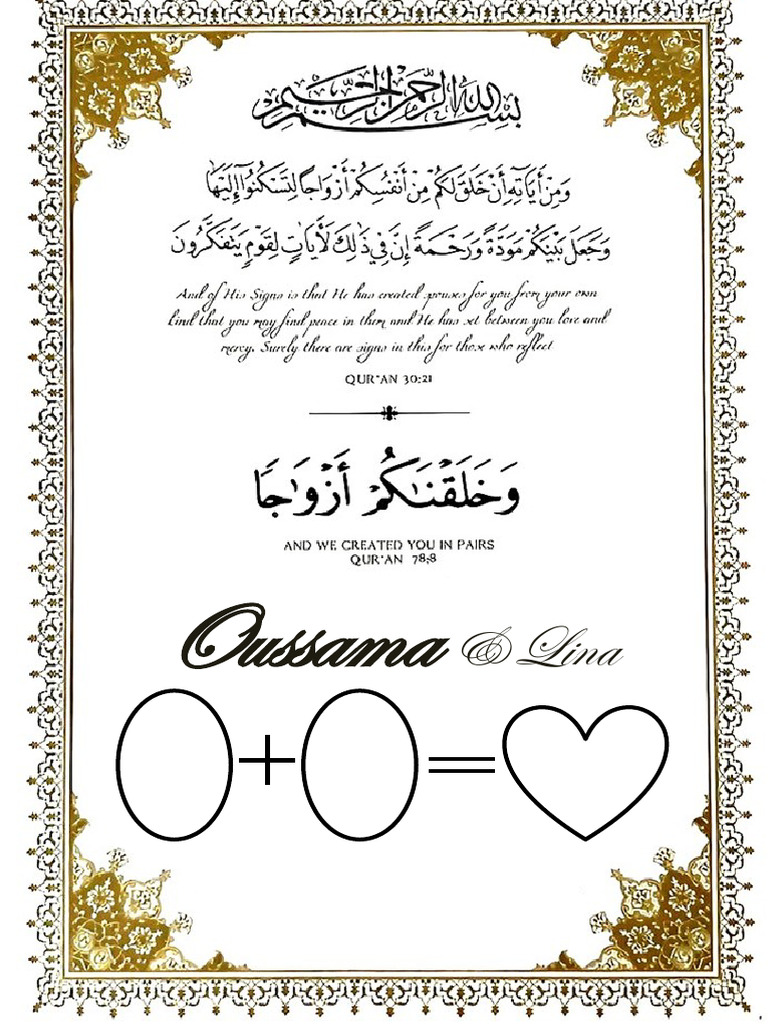 بسم الله الرحمن الرحيم
وَمِنْ أَيَاتِهِ أَنْ خَلَقَ لَكُمْ مِنْ أَنْفُسِكُمْ أَزْوَاجًا لِتَسْكُنُوا إِلَيْهَا
وَجَعَلَ بَيْنَكُمْ مَوَدَّةً وَرَحْمَةً إِنَّ فِي ذَلِكَ لَأَيَاتٍ لِقَوْمٍ يَتَفَكَّرُونَ
And of His Signs is that He has created spouses for you from your own
kind that you may find peace in them and He has set between you love and
mercy. Surely there are signs in this for those who reflect
QUR'AN 30:21
وَخَلَقْنَاكُمْ أَزْوَاجًا
AND WE CREATED YOU IN PAIRS
QUR'AN 78:8
Oussama & Lina
+ =